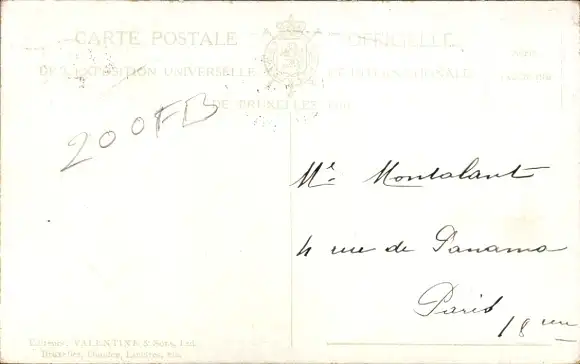 CARTE POSTALE OFFICIELLE
DE L'EXPOSITION UNIVERSELLE ET INTERNATIONALE
DE BRUXELLES
200FB
Mr. Montalant
4 rue de Panama
Paris
18em
Editeurs, VALENTINE & Sons, Ltd.
Bruxelles, Dundee, Londres, etc.